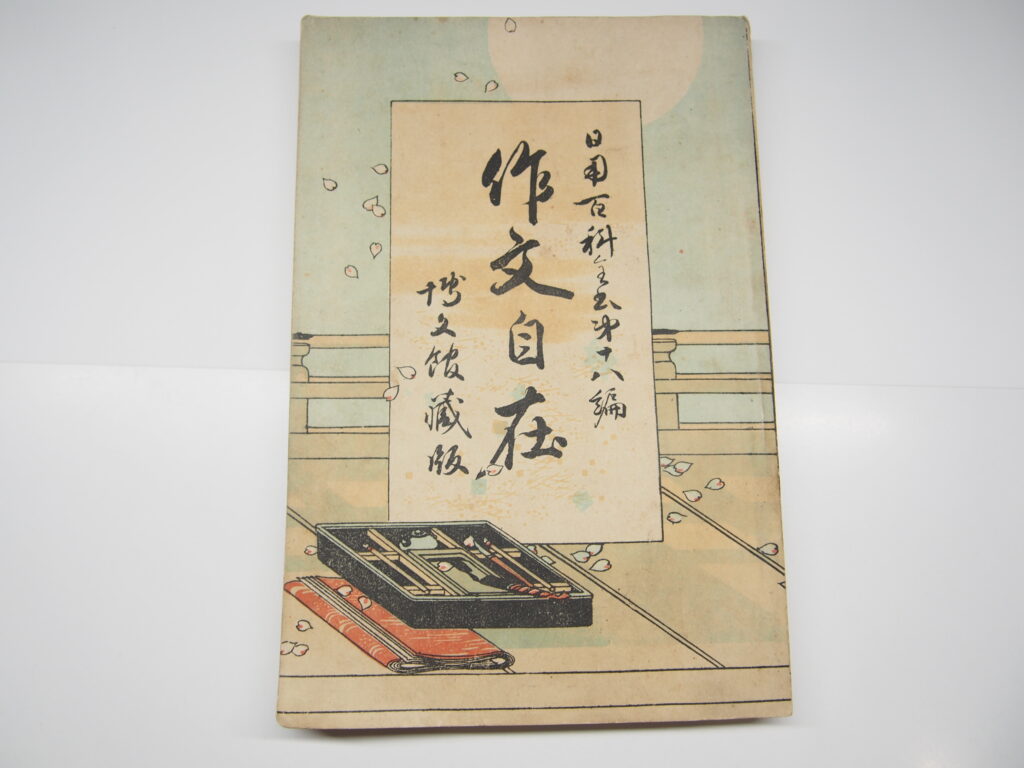 日用百科全書第十八編
作文自在
博文館蔵版